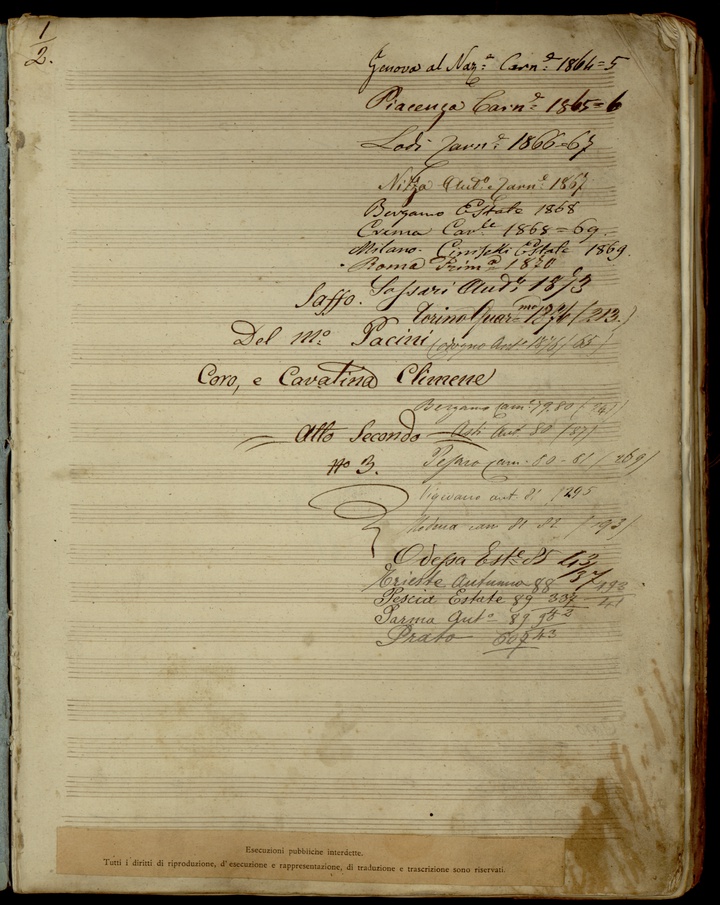 1/2.
Genova al Naz.e Carn.e 1864=5
Piacenza Carn.e 1865=6
Lodi Carn.e 1866=67
Nizza Aut.o e Carn.e 1867
Bergamo Estate 1868
Crema Car.le 1868=69.
Milano. Ciniselli Estate 1869
Roma Prim.a 1870
Saffo. Sassari Aud.i 1873
Torino Quar.ma 1876 (213.)
Del M.o Pacini
Coro, e Cavatina Climene
Bergamo Carn. 79.80 (247)
Atto Secondo Asti Aut 80 (187)
No 3. Pesaro Carn. 80-81 (269)
Vigevano aut 81 (295
Modena carn 81 82 (193)
Odessa Est.e 85 43/37
Trieste Autunno 88 493
Pescia Estate 89 337 41
Parma Aut.o 89 952
Prato
Esecuzioni pubbliche interdette.
Tutti i diritti di riproduzione, d'esecuzione e rappresentazione, di traduzione e trascrizione sono riservati.